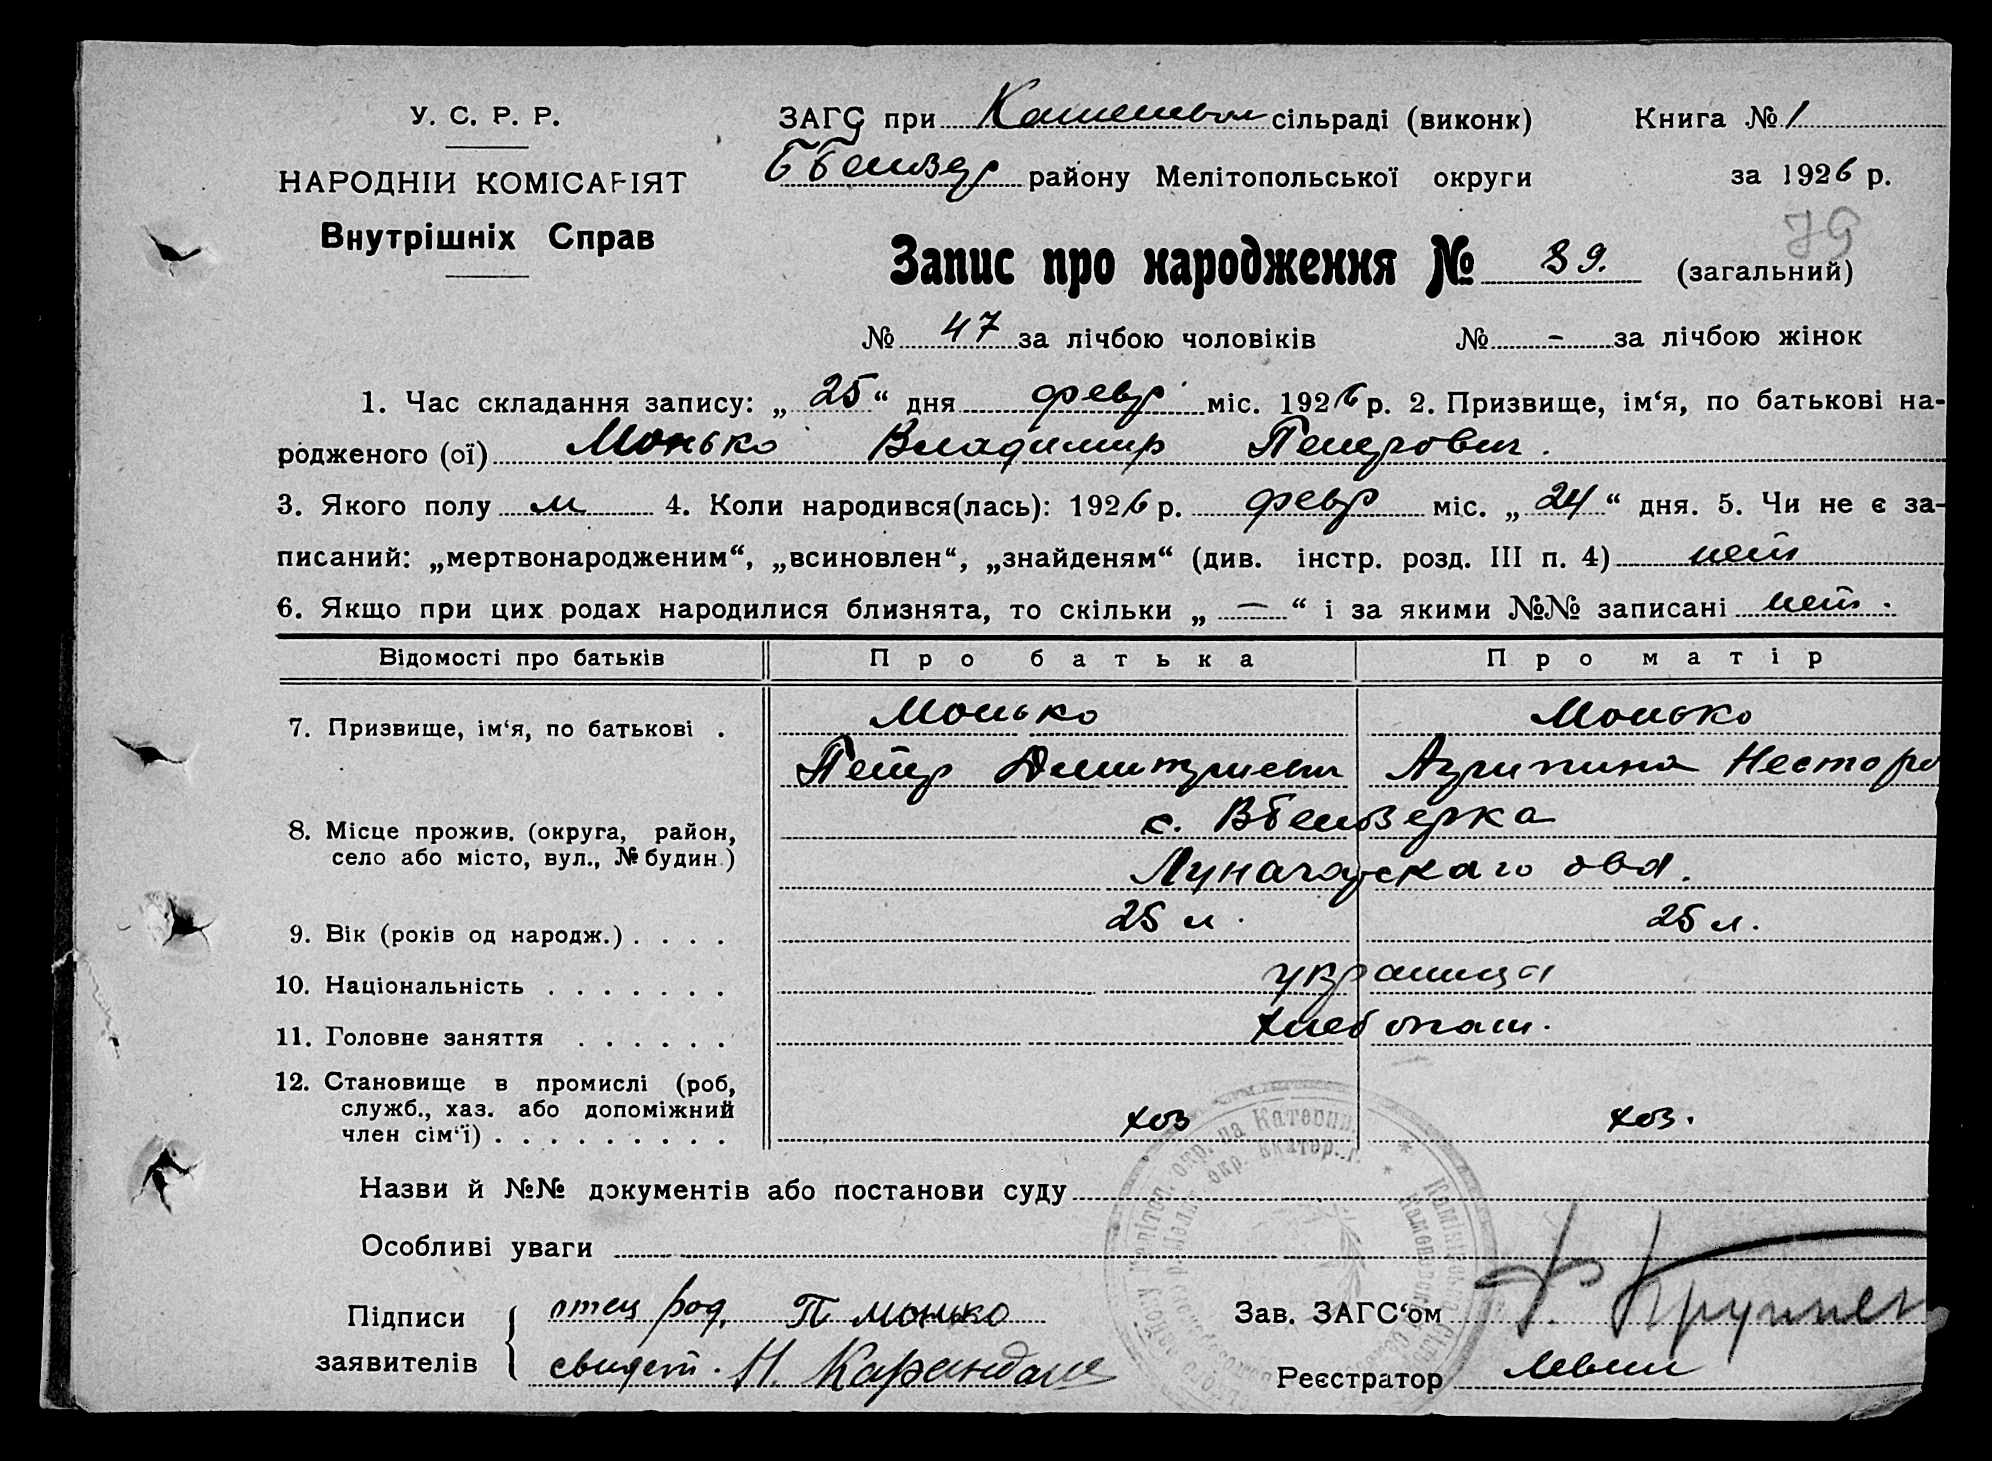 У. С. Р. Р.
НАРОДНІЙ КОМІСАРІЯТ
Внутрішніх Справ
ЗАГС при сільраді (виконк)
району Мелітопольської округи
Книга № 1
за 1926 р.
79
Запис про народження № 89. (загальний)
№ 47 за лічбою чоловіків № - за лічбою жінок
1. Час складання запису: „25“ дня февр міс. 1926 р. 2. Призвище, ім‘я, по батькові на-
родженого (ої) Монько Владимир Петрович.
3. Якого полу м 4. Коли народився(лась): 1926 р. февр міс. „24“ дня. 5. Чи не є за-
писаний: „мертвонародженим“, „всиновлен“, „знайденям“ (див. інстр. розд. III п. 4) нет
6. Якщо при цих родах народилися близнята, то скільки „ — “ і за якими №№ записані нет.
Відомості про батьків Про батька Про матір
7. Призвище, ім‘я, по батькові . Монько Монько
Петр Дмитриевич Агрипина Нестеро
8. Місце прожив. (округа, район, село або місто, вул., № будин.) с.
9. Вік (років од народж.) . . . . 25 л. 25 л.
10. Національність . . . . . . . украинца
11. Головне заняття . . . . . . хлебопаш.
12. Становище в промислі (роб,
служб., хаз. або допоміжний
член сім‘ї) . . . . . . . . . хоз хоз.
Назви й №№ документів або постанови суду
Особливі уваги
Підписи
заявителів
отец род. П Монько
свидет. Н.
Зав. ЗАГС‘ом
Реєстратор